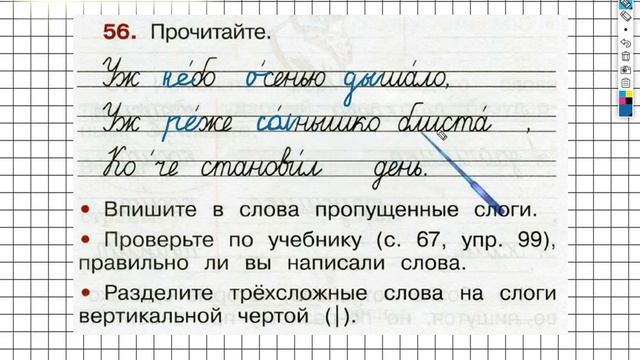 56. Прочитайте.
Уж не́бо о́сенью дыша́ло,
Уж ре́же солнышко блиста́ ,
Ко ́че станови́л день.
• Впишите в слова пропущенные слоги.
• Проверьте по учебнику (с. 67, упр. 99),
правильно ли вы написали слова.
• Разделите трёхсложные слова на слоги
вертикальной чертой (|).